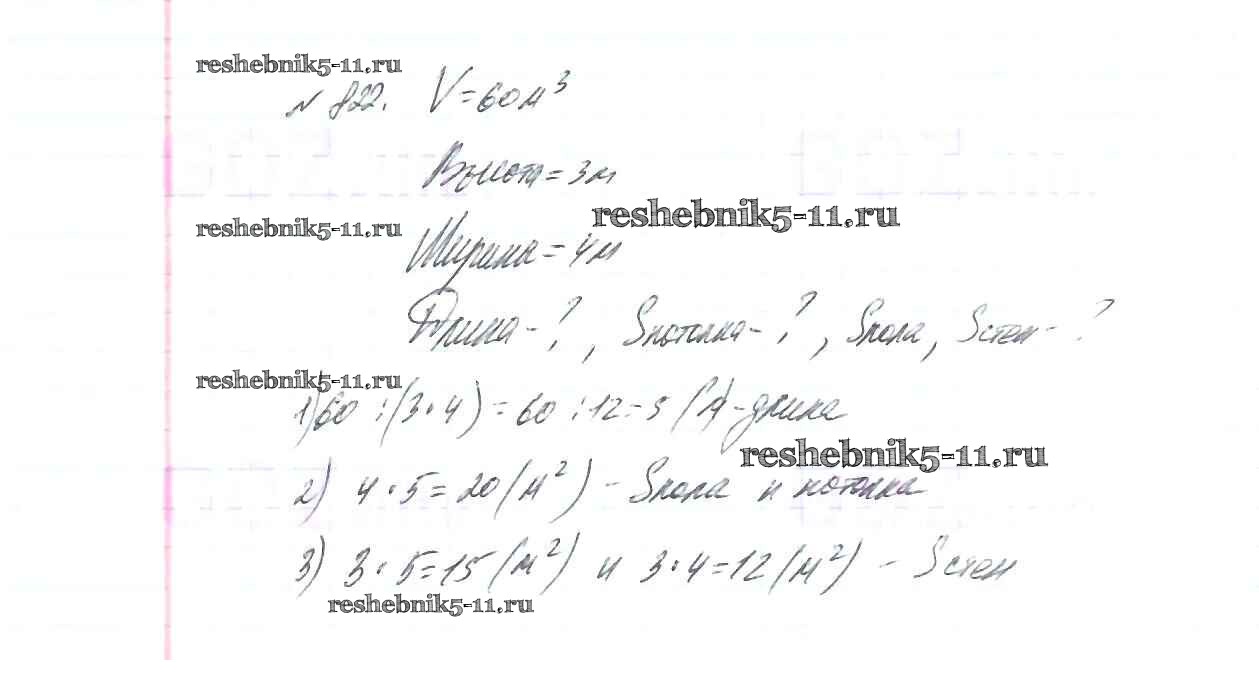 reshebnik5-11.ru
№ 822. V=60м³
Высота=3м
reshebnik5-11.ru
reshebnik5-11.ru
Ширина=4м
Длина-?, Sпотолка-?, Sпола, Sстен-?
reshebnik5-11.ru
1) 60:(3·4)=60:12=5 (м)-длина
reshebnik5-11.ru
2) 4·5=20(м²) - Sпола и потолка
3) 3·5=15(м²) и 3·4=12(м²) - Sстен
reshebnik5-11.ru